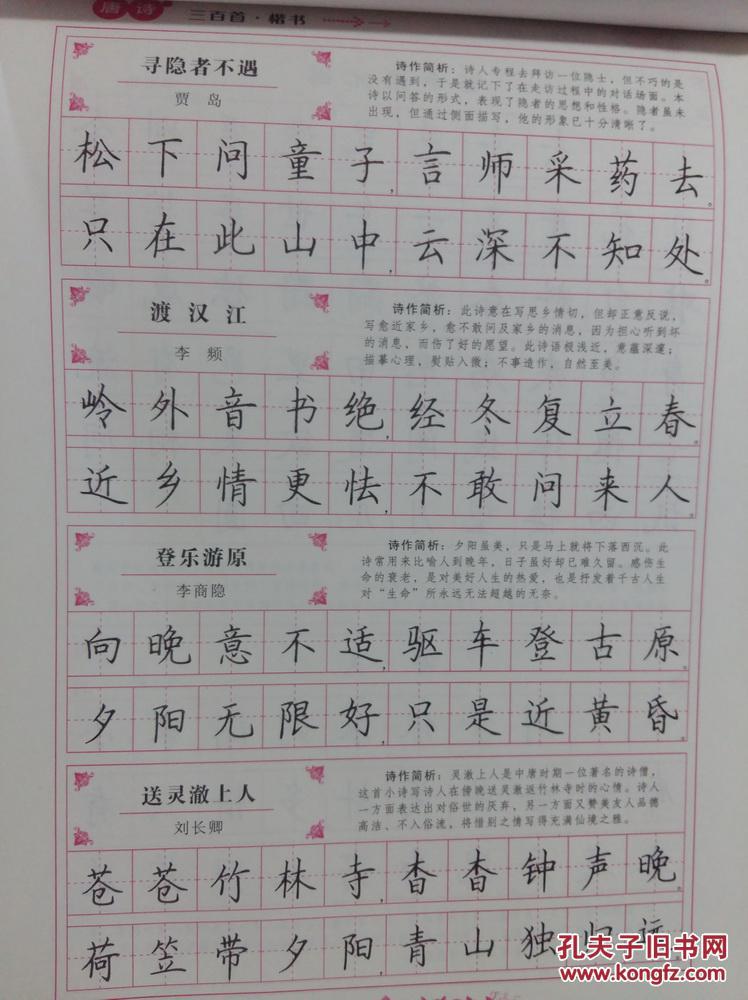 唐诗三百首·楷书
寻隐者不遇
贾岛
诗作简析：诗人专程去拜访一位隐士，但不巧的是
没有遇到，于是就记下了在走访过程中的对话场面。本
诗以问答的形式，表现了隐者的思想和性格。隐者虽未
出现，但通过侧面描写，他的形象已十分清晰了。
松下问童子，言师采药去。
只在此山中，云深不知处。
渡汉江
李频
诗作简析：此诗意在写思乡情切，但却正意反说，
写愈近家乡，愈不敢问及家乡的消息，因为担心听到坏
的消息，而伤了好的愿望。此诗语极浅近，意蕴深邃；
描摹心理，熨贴入微；不事造作，自然至美。
岭外音书绝，经冬复立春。
近乡情更怯，不敢问来人。
登乐游原
李商隐
诗作简析：夕阳虽美，只是马上就将下落西沉。此
诗常用来比喻人到晚年，日子虽好却已难久留。感伤生
命的衰老，是对美好人生的热爱，也是抒发着千古人生
对“生命”所永远无法超越的无奈。
向晚意不适，驱车登古原。
夕阳无限好，只是近黄昏。
送灵澈上人
刘长卿
诗作简析：灵澈上人是中唐时期一位著名的诗僧，
这首小诗写诗人在傍晚送灵澈返竹林寺时的心情。诗人
一方面表达出对俗世的厌弃，另一方面又赞美友人品德
高洁、不入俗流，将惜别之情写得充满仙境之雅。
苍苍竹林寺，杳杳钟声晚。
荷笠带夕阳，青山独归远
孔夫子旧书网
www.kongfz.com